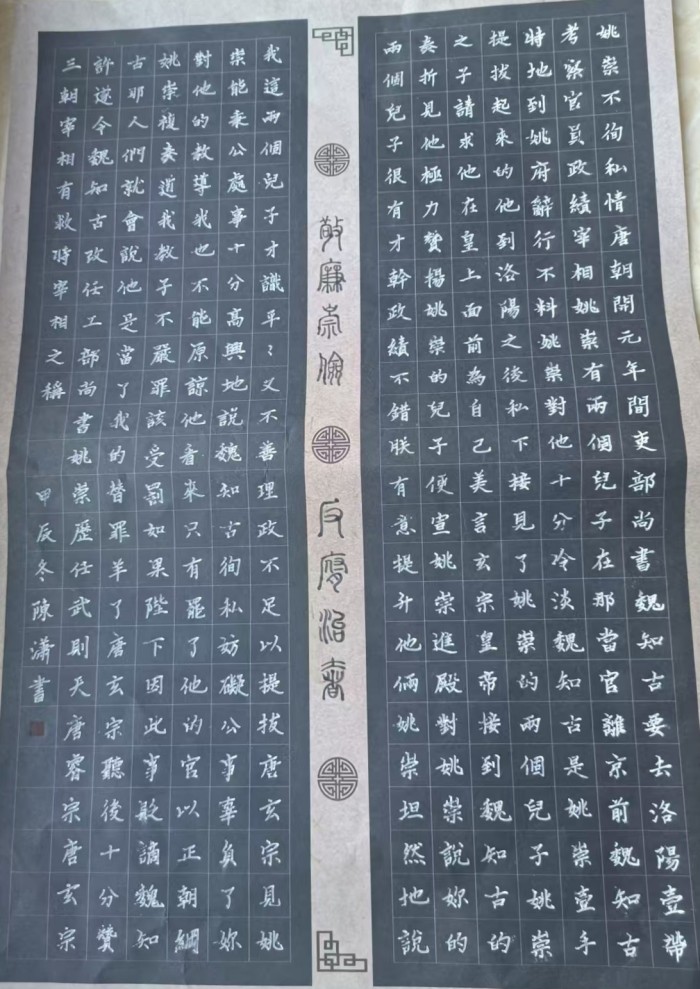 姚崇不徇私情唐朝開元年間吏部尚書魏知古要去洛陽壹帶
考察官員政績宰相姚崇有兩個兒子在那當官離京前魏知古
特地到姚府辭行不料姚崇對他十分冷淡魏知古是姚崇壹手
提拔起來的他到洛陽之後私下接見了姚崇的兩個兒子姚崇
之子請求他在皇上面前為自己美言玄宗皇帝接到魏知古的
奏折見他極力贊揚姚崇的兒子便宣姚崇進殿對姚崇說妳的
兩個兒子很有才幹政績不錯朕有意提升他倆姚崇坦然地說
敬廉崇儉 反腐治奢
我這兩個兒子才識平々又不善理政不足以提拔唐玄宗見姚
崇能秉公處事十分高興地說魏知古徇私妨礙公事辜負了妳
對他的教導我也不能原諒他看來只有罷了他的官以正朝綱
姚崇複奏道我教子不嚴罪該受罰如果陛下因此事貶謫魏知
古那人們就會說他是當了我的替罪羊了唐玄宗聽後十分贊
許遂令魏知古改任工部尚書姚崇歷任武則天唐睿宗唐玄宗
三朝宰相有救時宰相之稱
甲辰冬陳瀟書